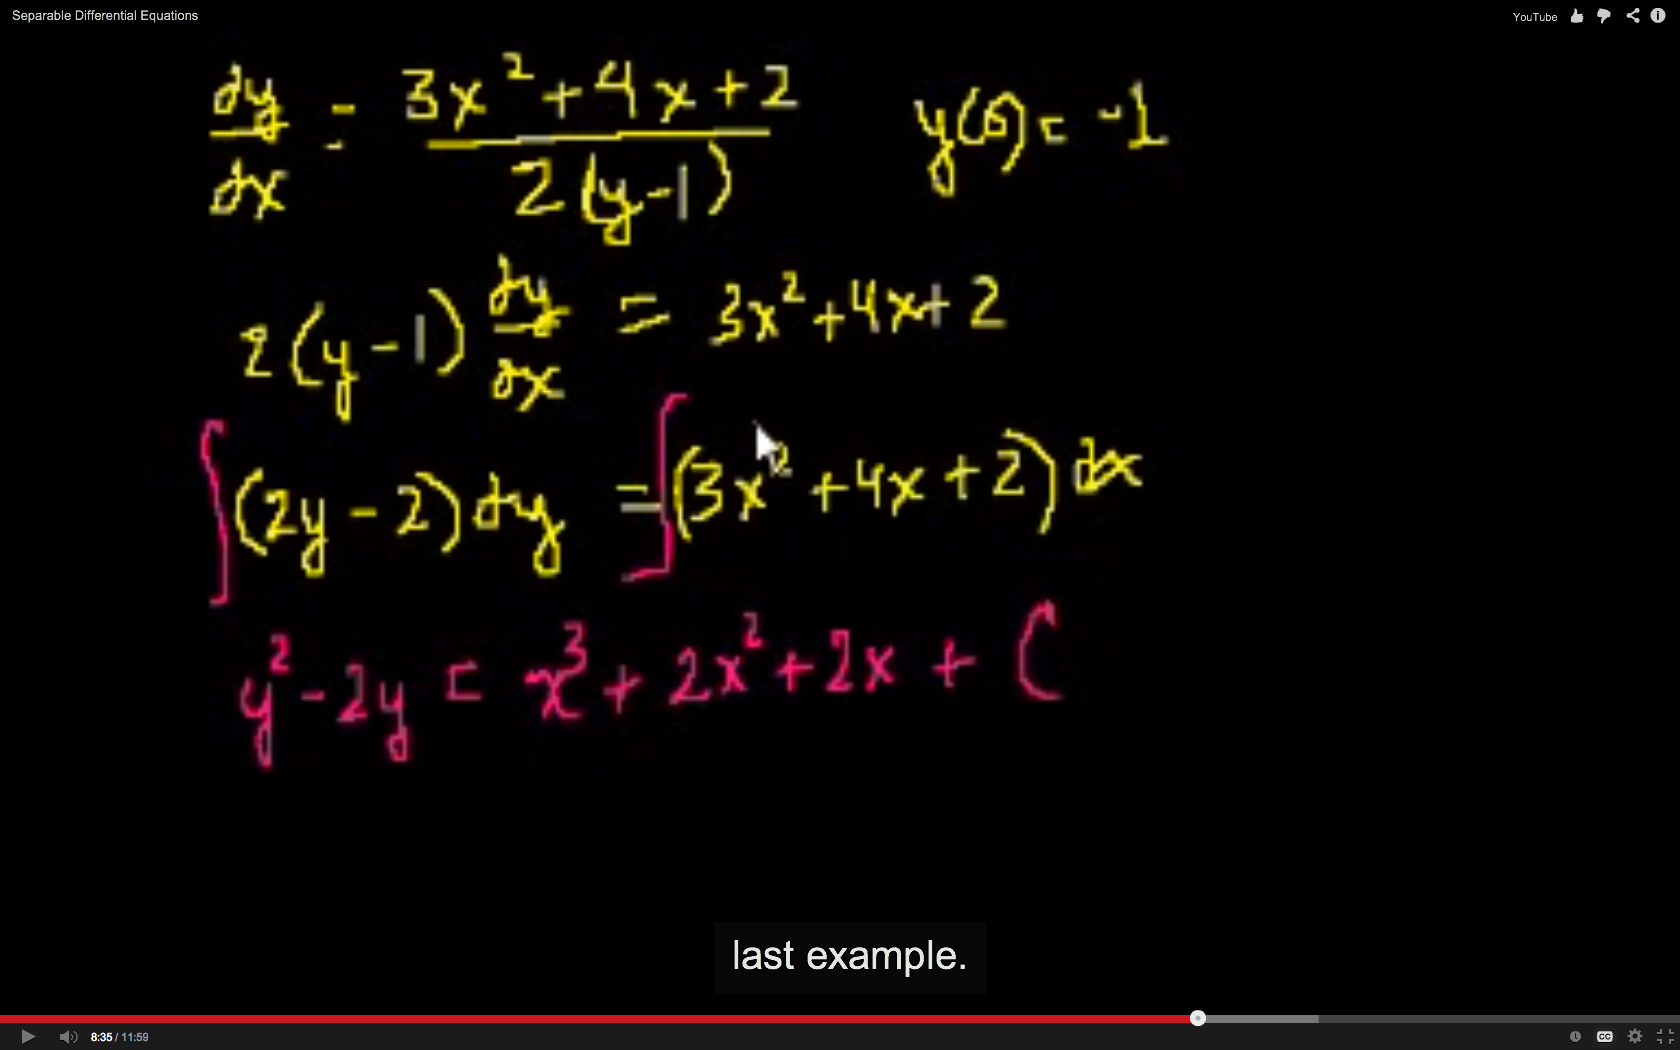 Separable Differential Equations
YouTube
dy/dx = (3x² + 4x + 2) / (2(y - 1))    y(0) = -1
2(y - 1) dy/dx = 3x² + 4x + 2
∫(2y - 2)dy = ∫(3x² + 4x + 2)dx
y² - 2y = x³ + 2x² + 2x + C
last example.
8:35 / 11:59
CC